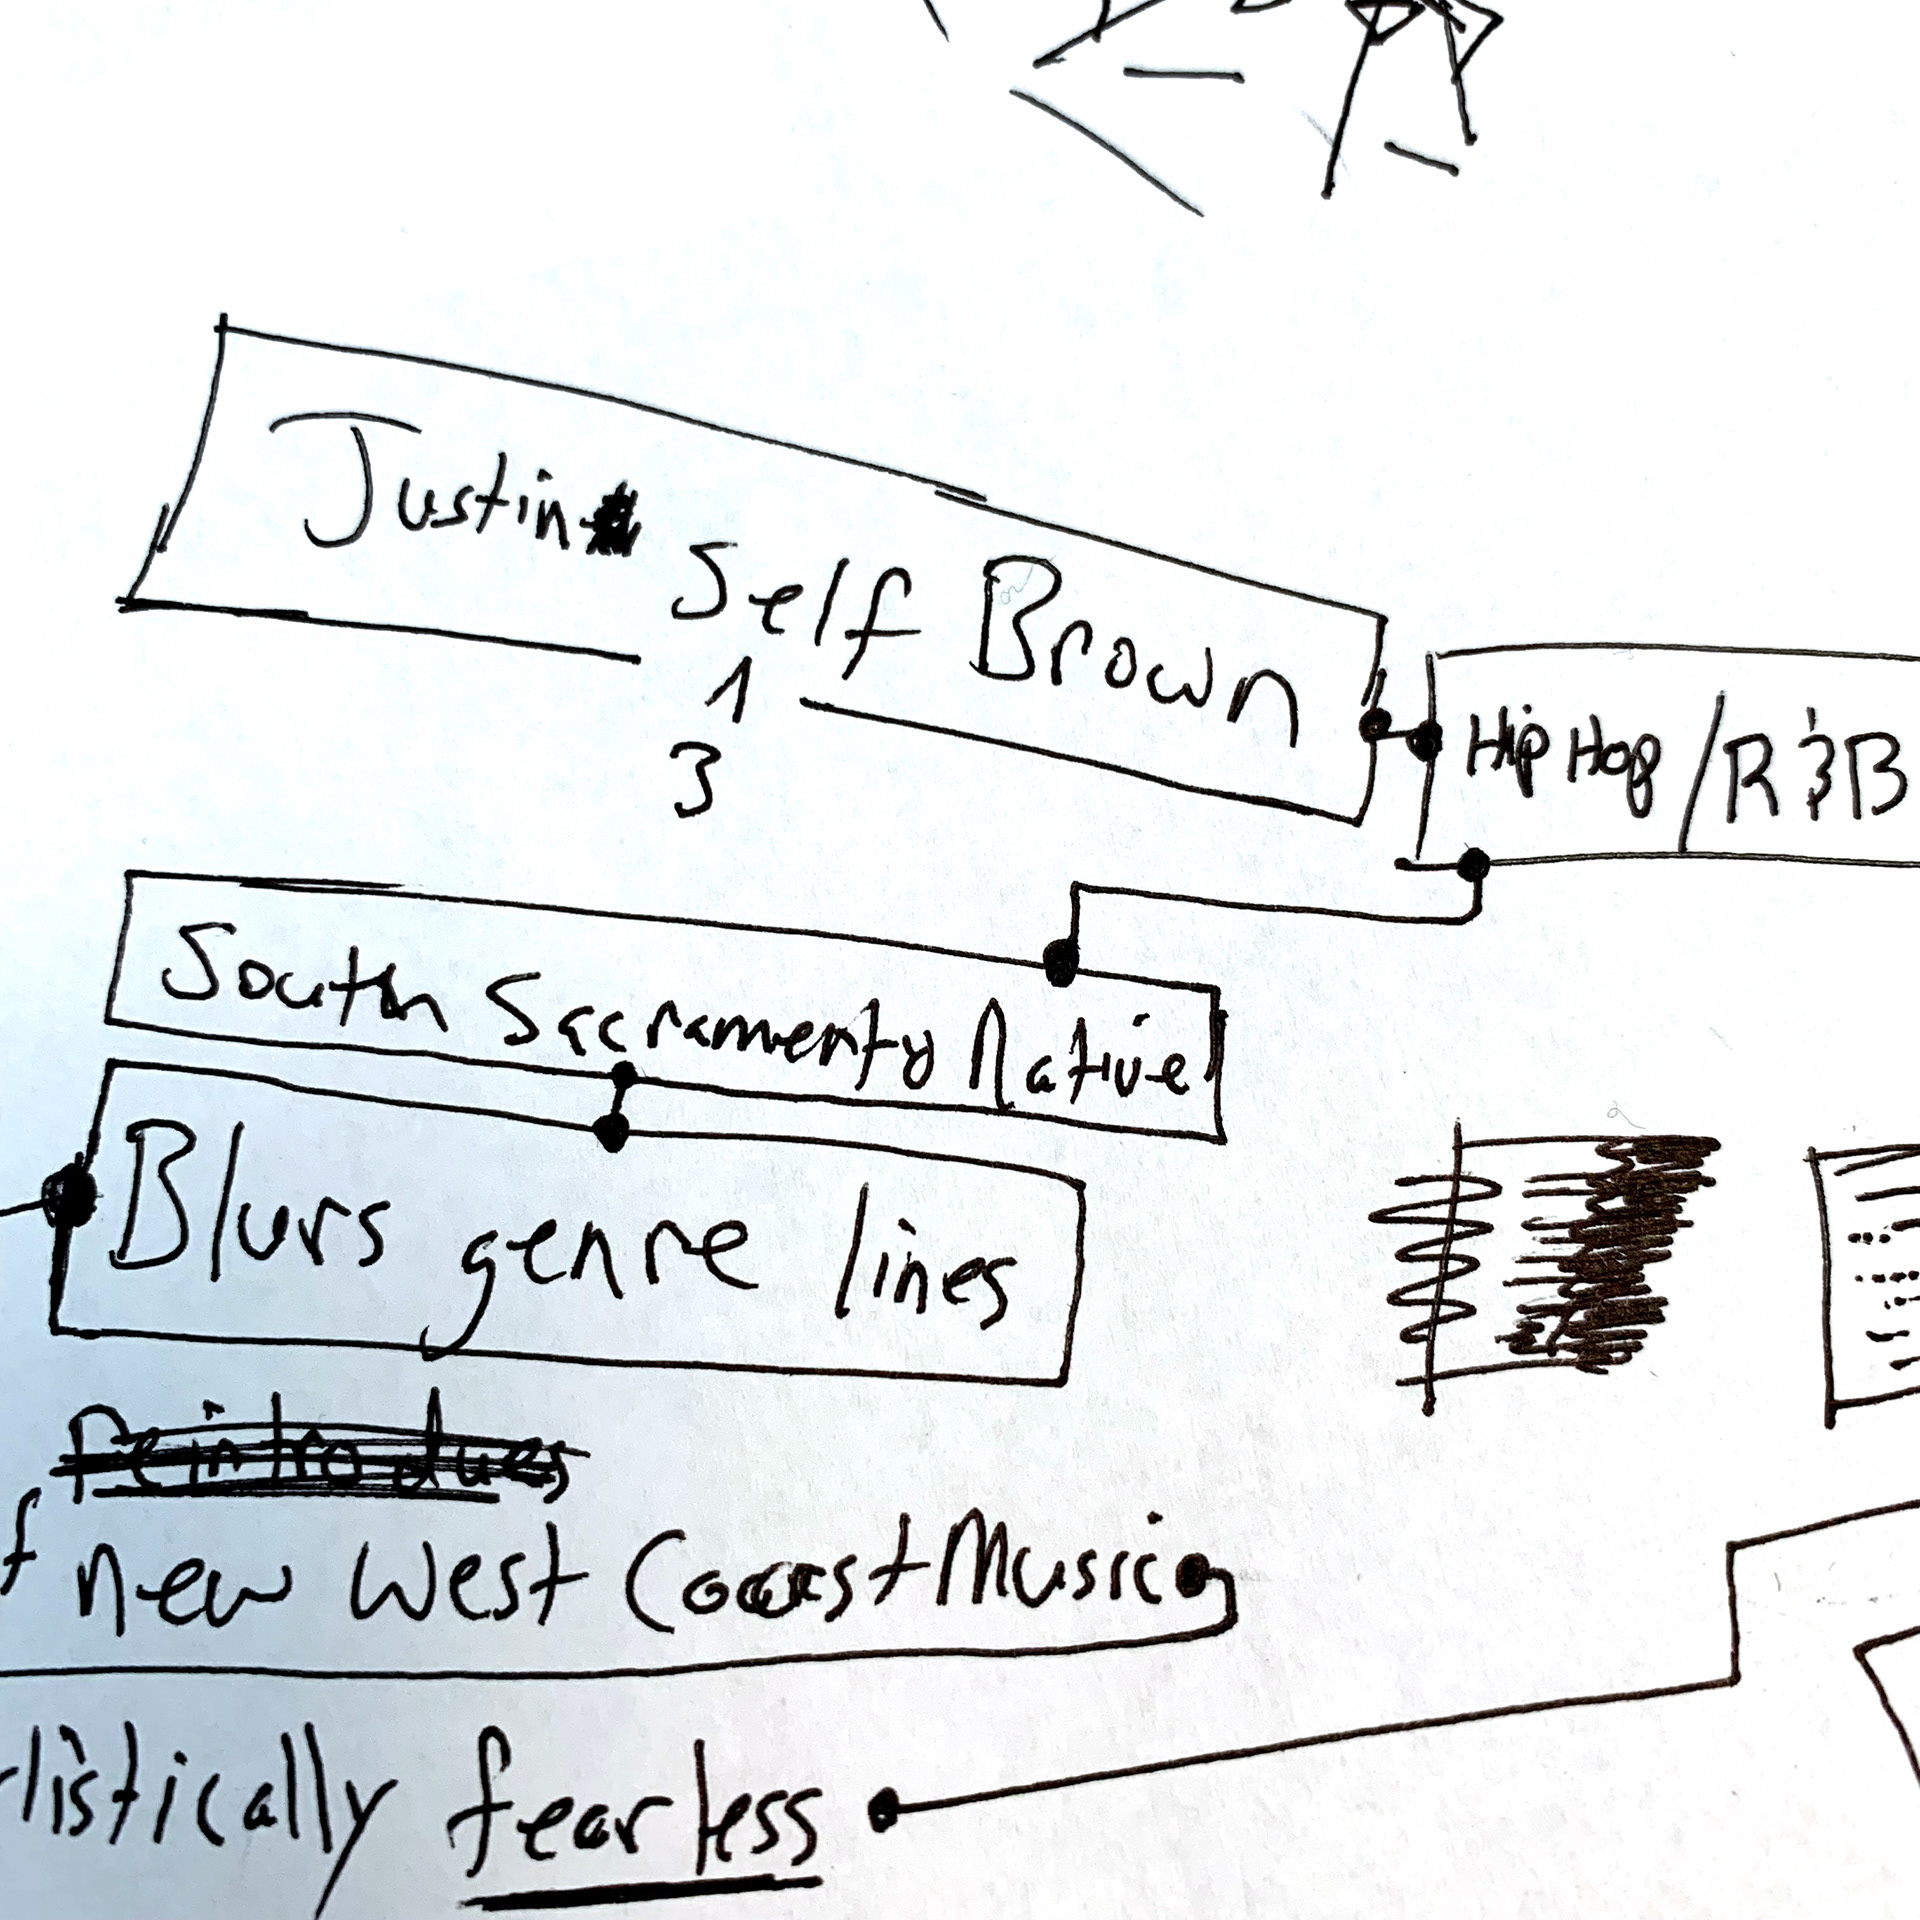 Justin Self Brown
1
3
Hip Hop / R & B
South Sacramento Native
Blurs genre lines
reintroduces
f new West Coast Music
listically fearless